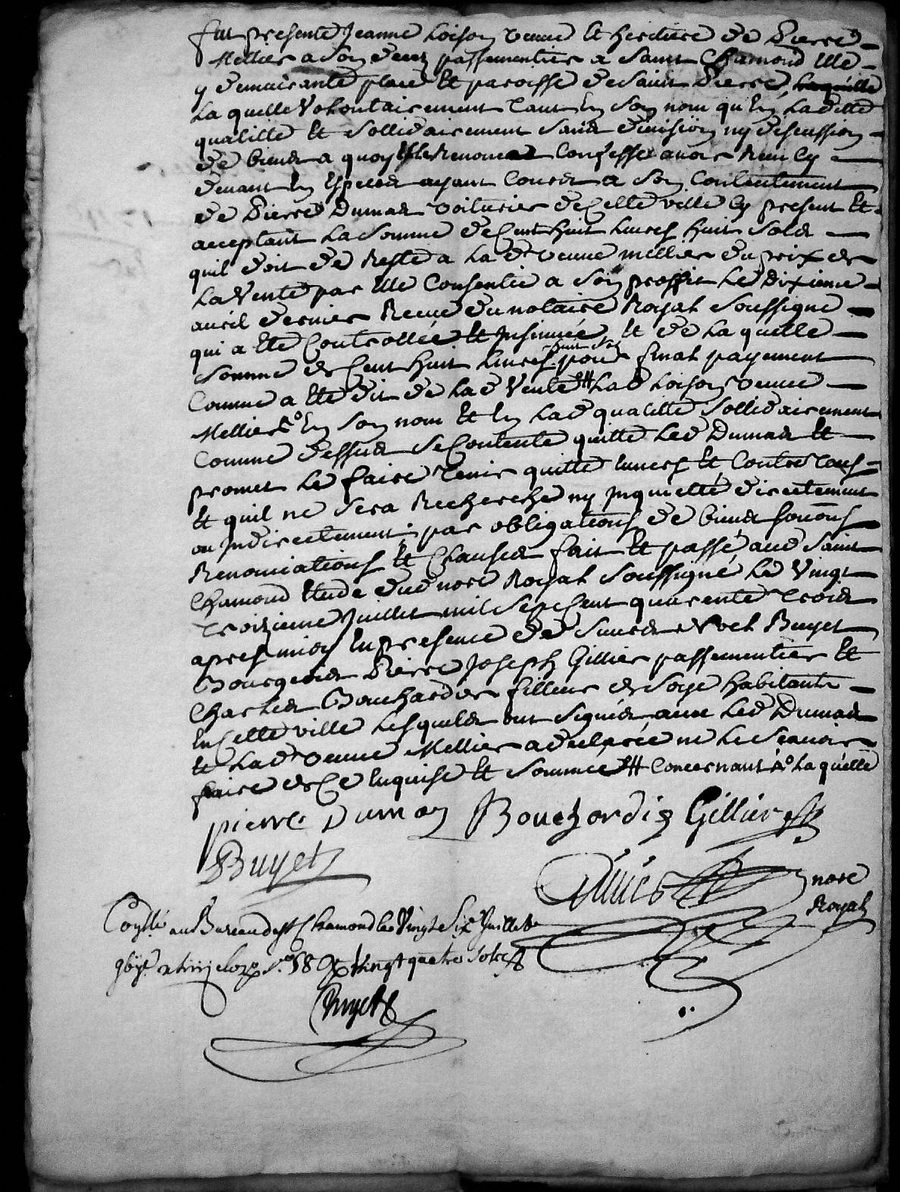 fut presente Jeanne Loison veuve et heritiere de Pierre
Mellier a son deces passementier a Saint Chamond Elle
y demeurante place et paroisse de Saint Pierre laquelle
La quelle volontairement tant en son nom qu'en La ditte
qualitté et sollidairement sans division ny discussion
de biens a quoy Elle Renonce Confesse avoir Receu cy
devant en Especes ayant Cours a son Contentement
de Pierre Dumas voiturier de Cette ville Cy present et
acceptant La somme de Cent huit Livres huit sols
quil doit de Reste a La de veuve mellier du prix de
La vente par Elle Consentie a son proffit Le Dixieme
avril dernier Receue du notaire Royal soussigné
qui a eté Controllée et Insinuée et de La quelle
somme de Cent huit Livres huit sols pour final payement
Comme a eté dit de La de vente # La de Loison veuve
Mellier en son nom et en La de qualitté sollidairement
Comme dessus se Contente quitte Led Dumas et
promet Le faire tenir quitte envers et Contre tous
et quil ne sera Recherché ny Inquietté directement
ou Indirectement : par obligations de biens
Renonciations et Clauses fait et passé aud Saint
Chamond Etude du nore Royal soussigné Le vingt
troizieme Juillet mil sept Cent quarente trois
apres midy En presence de Sieurs Buyet
Bourgeois Pierre Joseph Gillier passementier et
Charles Bouchardier filleur de soye habitants
En Cette ville Lesquels ont signés avec Led Dumas
et La de veuve Mellier a declaree ne Le scavoir
faire de Ce Enquise et sommée # Concernant La quelle
pierre Dumas Bouchardié Gillier
Buyet
nore
Royal
au Bureau de St Chamond le Vingt Six Juillet
vingt quatre sols
Buyet